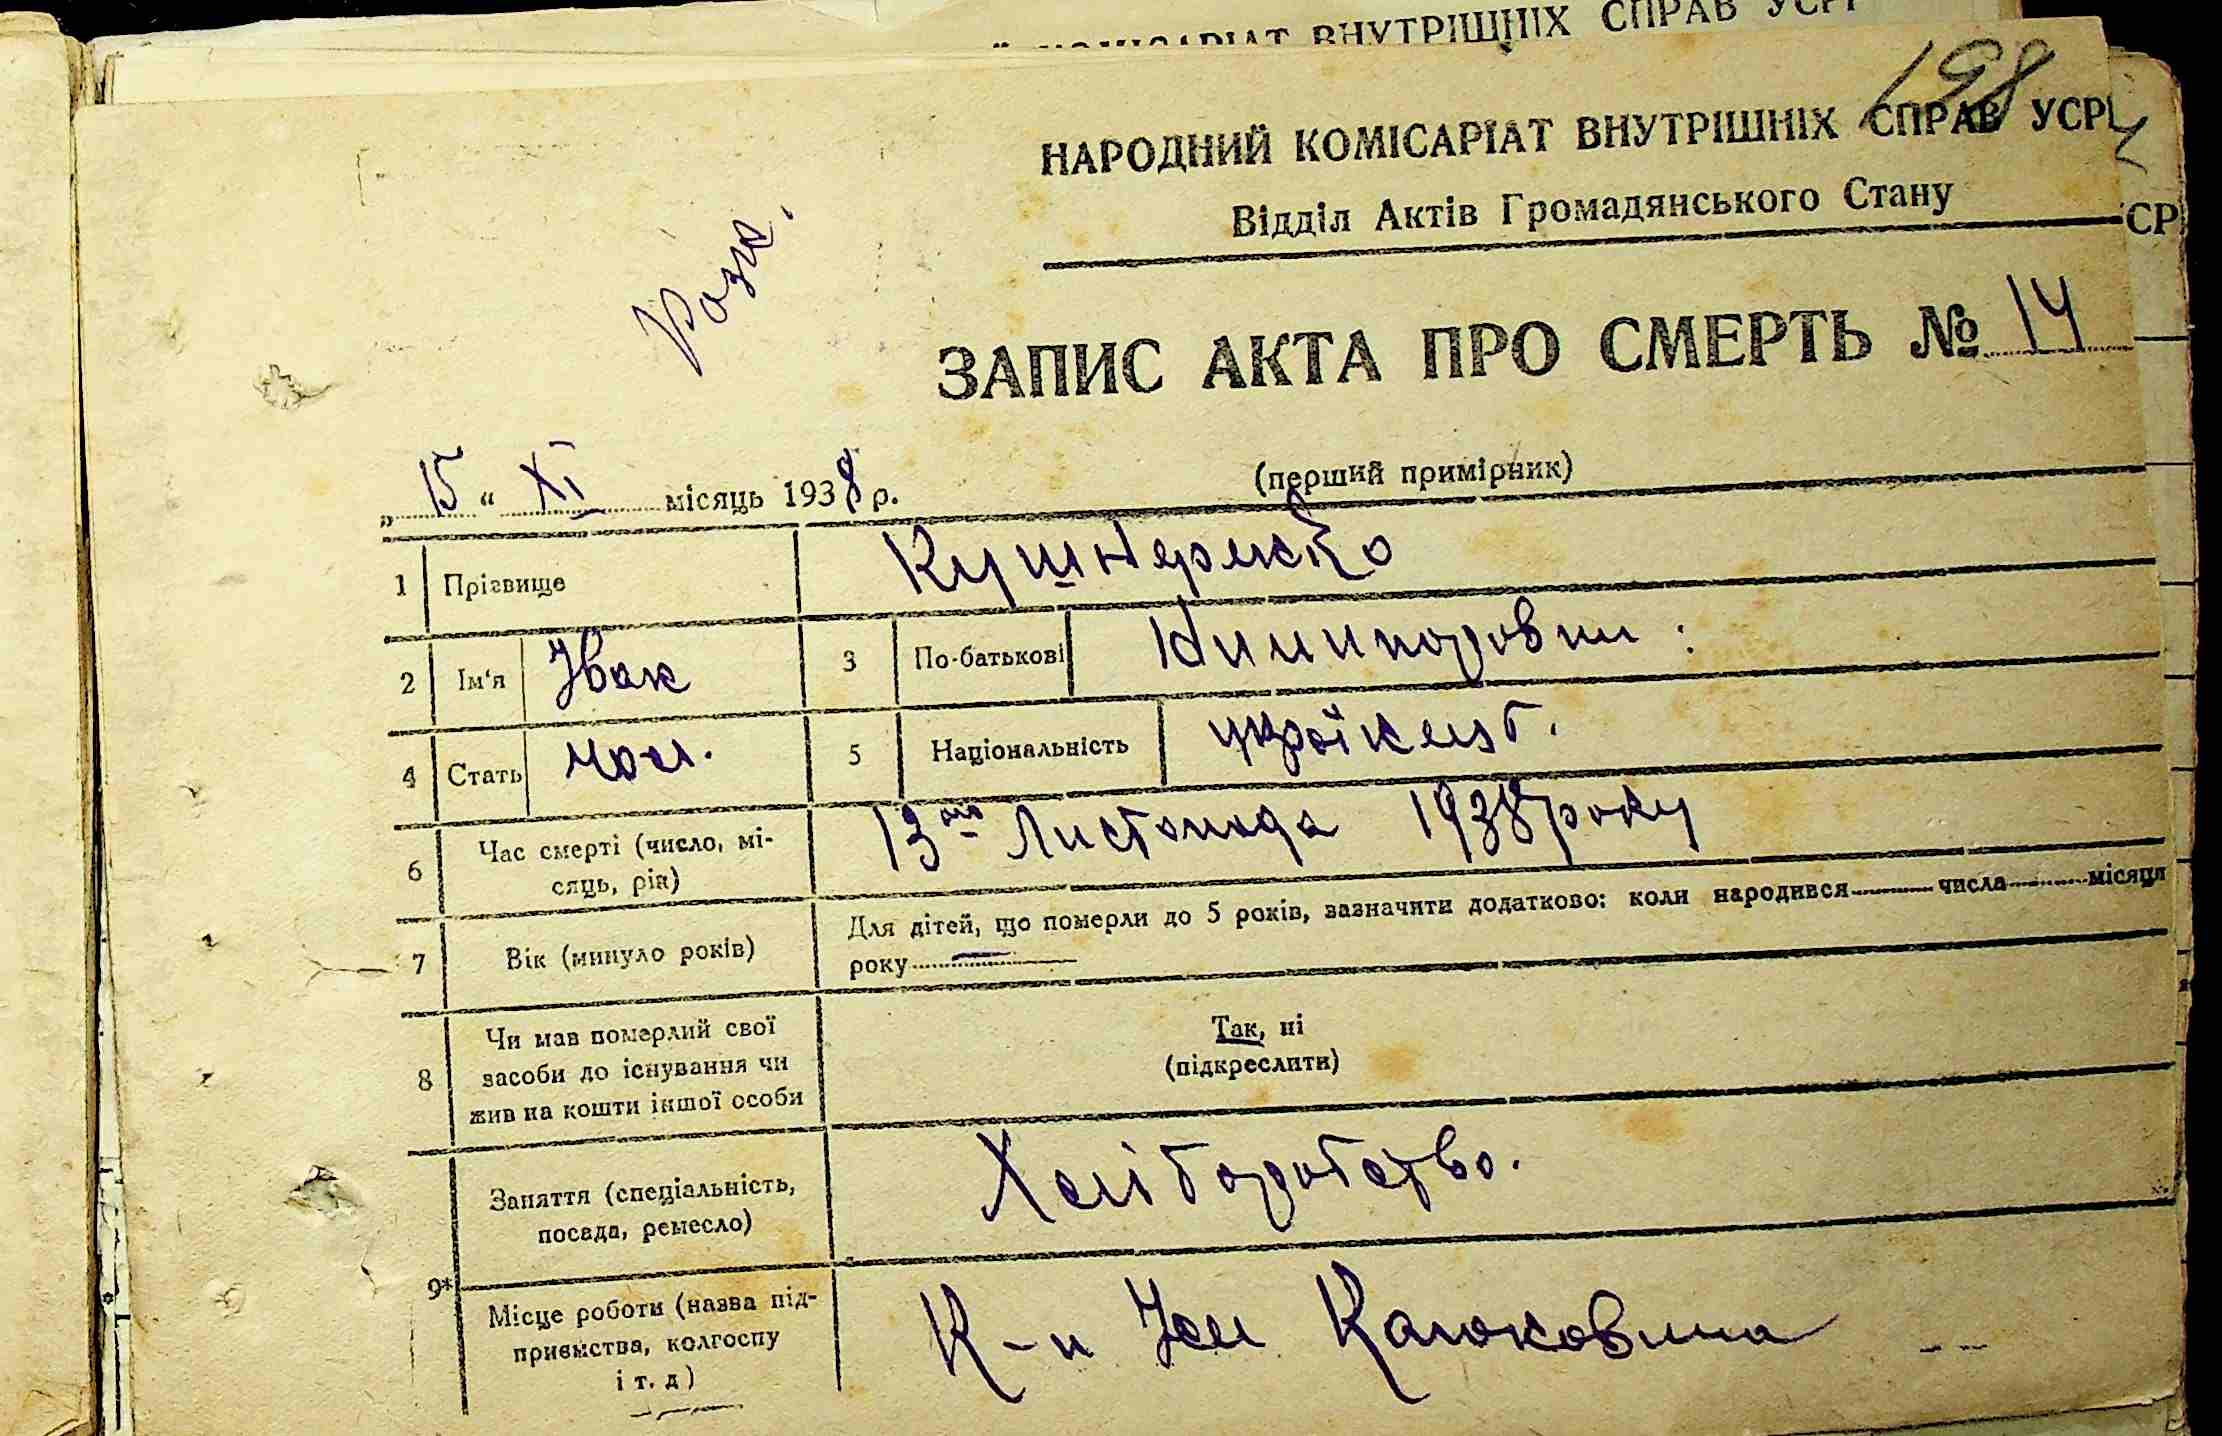 КОМІСАРІАТ ВНУТРІШНІХ СПРАВ УСРР
198
НАРОДНИЙ КОМІСАРІАТ ВНУТРІШНІХ СПРАВ УСРР
Відділ Актів Громадянського Стану
СР
ЗАПИС АКТА ПРО СМЕРТЬ № 14
(перший примірник)
„15“ XI місяць 1938 р.
1 Прізвище Кушнеренко
2 Ім'я Іван 3 По-батькові
4 Стать чол. 5 Національність україн
6 Час смерті (число, мі-
сяць, рік) 13го Листопада 1938 року
7 Вік (минуло років) Для дітей, що померли до 5 років, зазначити додатково: коли народився числа місяця
року
8 Чи мав померлий свої
засоби до існування чи
жив на кошти іншої особи
Так, ні
(підкреслити)
9* Заняття (спеціальність,
посада, ремесло) Хліборобство.
Місце роботи (назва під-
приємства, колгоспу
і т. д) К-п Ім